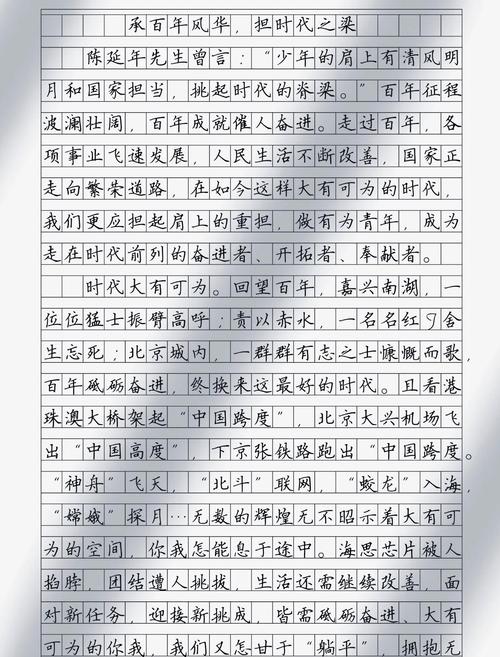 承百年风华，担时代之梁
陈延年先生曾言：“少年的肩上有清风明
月和国家担当，挑起时代的脊梁。”百年征程
波澜壮阔，百年成就催人奋进。走过百年，各
项事业飞速发展，人民生活不断改善，国家正
走向繁荣道路，在如今这样大有可为的时代，
我们更应担起肩上的重担，做有为青年，成为
走在时代前列的奋进者、开拓者、奉献者。
时代大有可为。回望百年，嘉兴南湖，一
位位猛士振臂高呼；贵以赤水，一名名红军舍
生忘死；北京城内，一群群有志之士慷慨而歌，
百年砥砺奋进，终换来这最好的时代。且看港
珠澳大桥架起“中国跨度”，北京大兴机场飞
出“中国高度”，下京张铁路跑出“中国跨度。
“神舟”飞天，“北斗”联网，“蛟龙”入海，
“嫦娥”探月…无数的辉煌无不昭示着大有可
为的空间，你我怎能息于途中。海思芯片被人
掐脖，团结遭人挑拔，生活还需继续改善，面
对新任务，迎接新挑成，皆需砥砺奋进、大有
可为的你我，我们又怎甘于“躺平”，拥抱无